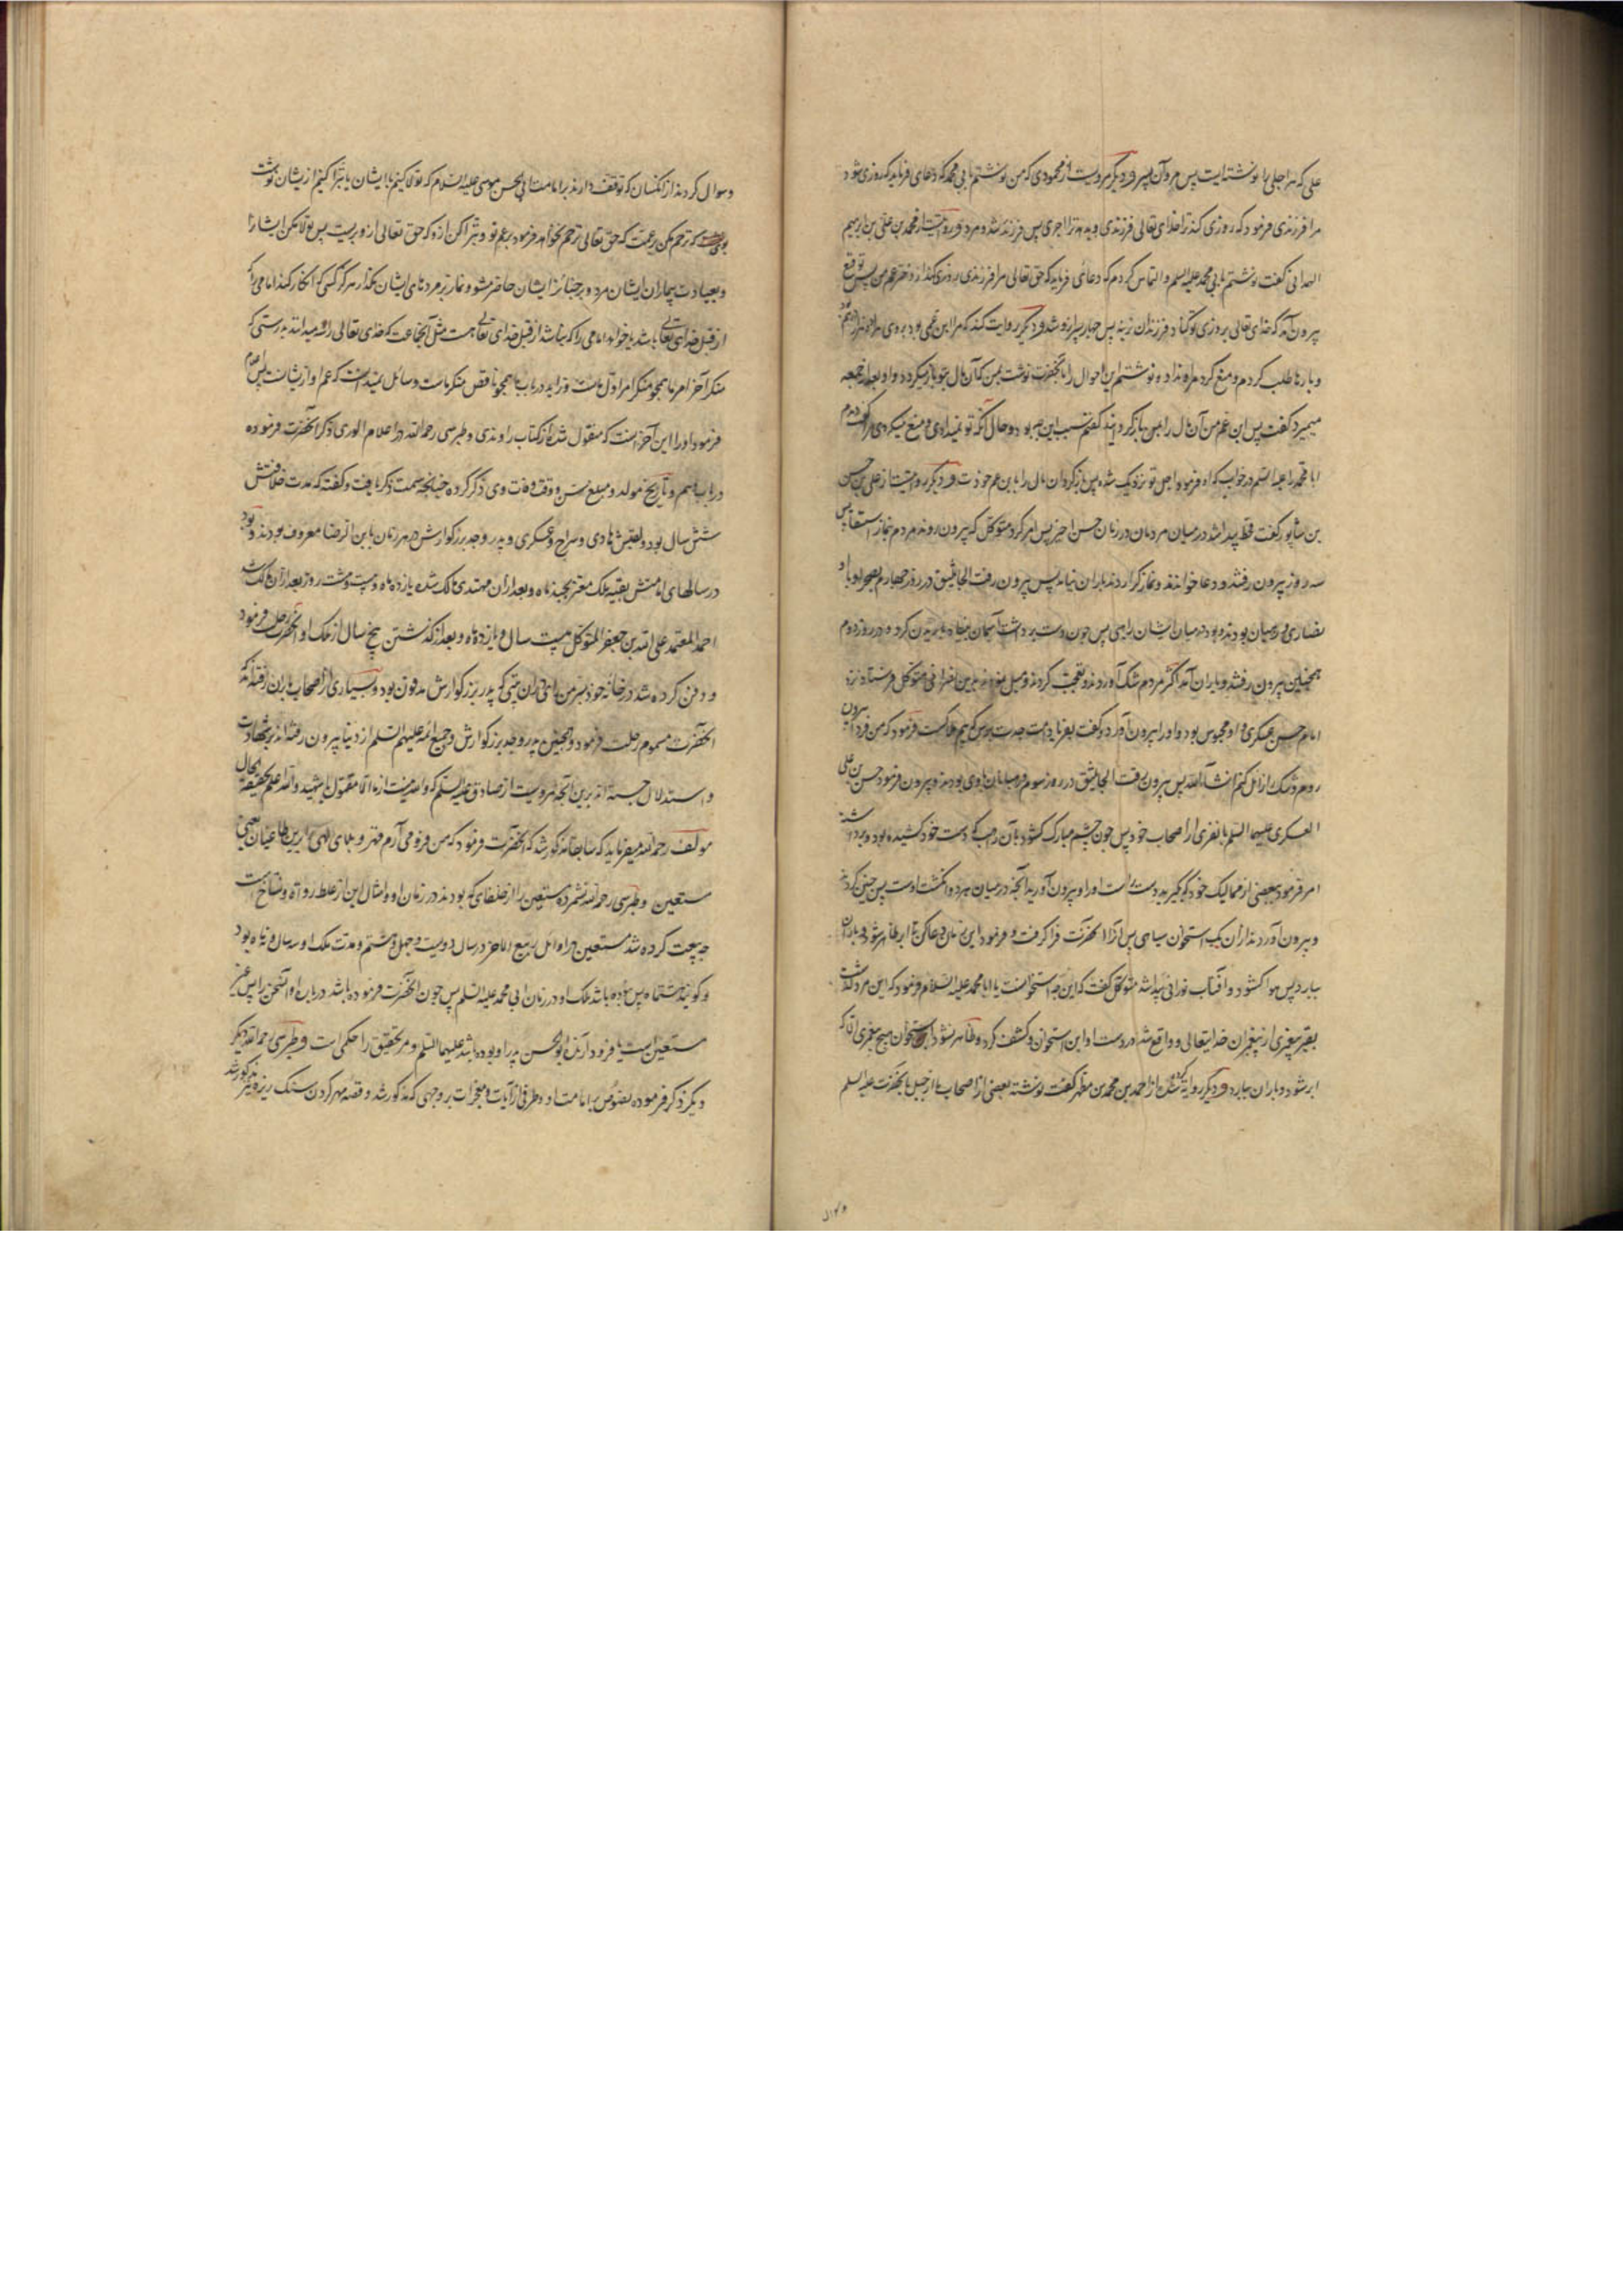 علی که مر اجلی را نوشته‌ایست پس مرد آن پسر و دیگر مرویست از محمودی که من نوشتم بابی محمد که دعای فرماید که روزی شود
مرا فرزندی فرمود که روزی کند ترا خدای تعالی فرزندی و بدهد ترا اجری پس فرزند شد و مرد و روایتست از محمد بن علی بن ابرهیم
الهمدانی گفت نوشتم بابی محمد علیه السلم و التماس کردم که دعائی فرماید که حق تعالی مرا فرزندی روزی کند از دختر عم من پس توقیع
بیرون آمد که خدای تعالی روزی تو کناد فرزندان نرینه پس چهار پسر ازو شد و دیگر روایت کند که مرا ابن عمی بود بروی
و بارها طلب کردم و منع کرد مرا و نداد و نوشتم این احوال را بانحضرت نوشت بمن که آن مال بتو باز میگردد و او بعد از جمعه
میمیرد گفت پس ابن عم من آن مال را بمن باز گردانید گفتم سبب این چه بود و حال آنکه تو نمیدادی و منع میکردی مرا گفت دیدم
ابا محمد را علیه السلم در خواب که فرمود اجل تو نزدیک شده پس باز گردان مال را بابن عم خود و دیگر روایتست از علی بن حسن
بن شاپور گفت قحط پیدا شد در میان مردمان در زمان حسن اخیر پس امر کرد متوکل که بیرون روند مردم بنماز استسقا پس
سه روز بیرون رفتند و دعا خواندند و نماز گزاردند باران نیامد پس بیرون رفت الجاثلیق در روز چهارم بصحرا و با او
نصاری و رهبان بودند و بود در میان ایشان راهبی پس چون دست برداشت آسمان بنیاد باریدن کرد و در روز دوم
همچنین بیرون رفتند و باران آمد اکثر مردم شک آوردند و تعجب کردند و میل نمودند بدین نصرانی متوکل فرستاد نزد
امام حسن عسکری و او محبوس بود و او را بیرون آورد و گفت بفریاد امت جدت برس که بیم هلاکست فرمود که من فردا بیرون
روم و شک زائل کنم انشاء الله پس بیرون رفت الجاثلیق در روز سوم و رهبانان با وی بودند و بیرون فرمود حسن بن علی
العسکری علیهما السلم با نفری از اصحاب خود پس چون چشم مبارک گشود بآن راهب که دست خود کشیده بود و برداشته
امر فرمود بعضی از ممالیک خود که بگیر ید دست راست او را و بیرون آور ید آنچه در میان هر دو انگشت اوست پس چنین کردند
و بیرون آوردند از آن یک استخوان سیاهی پس آنرا آنحضرت فرا گرفت و فرمود این زمان دعا کن تا ابر ظاهر شود و باران
ببارد پس هوا گشود و آفتاب نورانی پیدا شد متوکل گفت که این چه استخوانست یا ابا محمد علیه السلام فرمود که این مرد گذشت
بقبر پیغمبری از پیغمبران خدایتعالی و واقع شد در دست او این استخوان و کشف کرده و ظاهر نشود استخوان هیچ پیغمبری الا که
ابر شود و باران ببارد و دیگر روایت کرده شده از احمد بن محمد بن مطهر گفت نوشته بعضی از اصحاب ما از جبل بانحضرت علیه السلم
وسوال کردند
وسوال کردند از انکسان که توقف دارند بر امامت ابی الحسن موسی علیه السلام که تولا کنیم با ایشان یا تبرا کنیم از یشان نوشت
که ترحم مکن بر عمت که حق تعالی ترحم نخواهد فرمود بر عم تو و تبرا کن ازو که حق تعالی ازو بریست پس تولا مکن ایشانرا
و بعیادت بیماران ایشان مرو و بر جنائز ایشان حاضر مشو و نماز بر مردهای ایشان مگذار هرگز کسی که انکار کند امامی را که
از قبل خدای تعالی باشد یا خواند امامی را که نباشد از قبل خدای تعالی هست مثل آنجماعت که خدای تعالی را میدانند بدرستی که
منکر آخر امر ما همچو منکر امر اول ماست و زاید در باب ما همچو ناقص منکر ماست و سائل نمیدانست که عم او از یشانست پس اعلام
فرمود او را این آخر آنست که منقول شد از کتاب راوندی و طبرسی رحمه الله در اعلام الوری ذکر آنحضرت فرموده
در باب دهم و تاریخ مولد و مبلغ سن و وقت وفات وی ذکر کرده چنانچه سمت ذکر یافت و گفته که مدت خلافتش
شش سال بود و لقبش هادی و سراج و عسکری و پدر و جد بزرگوارش در هر زمان بابن الرضا معروف بودند و بود
در سالهای امامتش بقیه ملک معتز بچند ماه و بعد از آن مهتدی مالک شده یازده ماه و بیست و هشت روز بعد از آن مالک شد
احمد المعتمد علی الله بن جعفر المتوکل بیست سال و یازده ماه و بعد از گذشتن پنج سال از ملک او آنحضرت رحلت فرمود
و دفن کرده شد در خانه خود بسر من رای در ان بیتی که پدر بزرگوارش مدفون بود و بسیاری از اصحاب ما بر ان رفته‌اند که
آنحضرت مسموم رحلت فرمود و همچنین پدر و جد بزرگوارش و جمیع ائمه علیهم السلم از دنیا بیرون رفته‌اند بر شهادت
و استدلال جسته‌اند برین آنچه مرویست از صادق علیه السلم که والله نیست از ما الا مقتول یا شهید والله اعلم بحقیقة الحال
مولف رحمه الله میفرماید که سابقا مذکور شد که آنحضرت فرمود که من فرومی آرم قهر و بلای الهی را برین طاغیان یعنی
مستعین و طبرسی رحمه الله نشمرده مستعین را از خلفای که بودند در زمان او و امثال این از غلط رواة و نساخ است
چه بیعت کرده شد مستعین در اوائل ربیع الاخر در سال دویست و چهل و هشتم و مدت ملک او سه سال و نه ماه بود
و گویند هشت ماه پس بوده باشد ملک او در زمان ابی محمد علیه السلم پس چون آنحضرت فرموده باشد در باب او آن سخن را پس غیر
مستعین است یا فرود آرنده ابو الحسن پدر او بوده باشد علیهما السلم و مر تحقیق را حکمی است و طبرسی رحمه الله دیگر
دیگر ذکر فرموده نصوص بر امامت او و طرفی از آیات و معجزات بر وجهی که مذکور شد و قصه مهر کردن سنگ ریزه و غیر مذکور شد